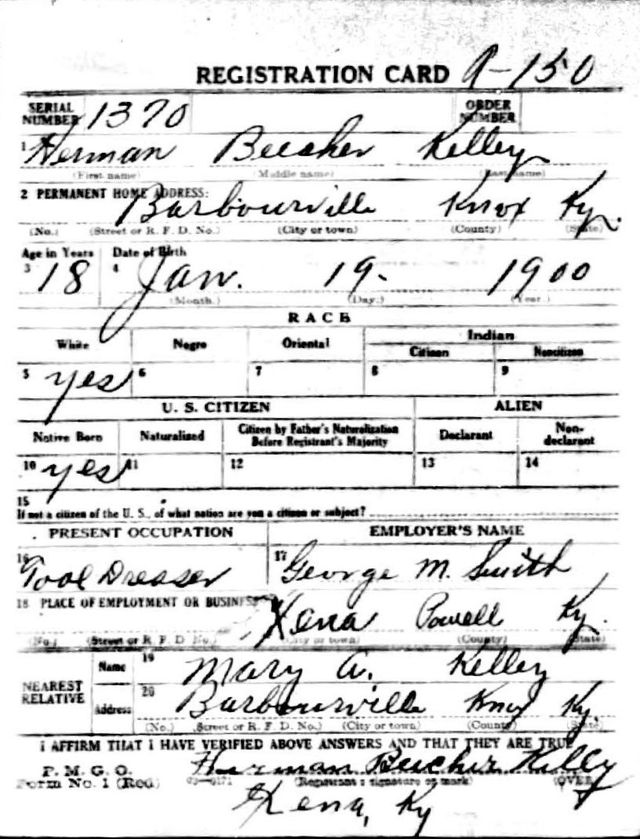 REGISTRATION CARD 9-150
SERIAL NUMBER 1370 ORDER NUMBER
1 Herman Beecher Kelley
(First name) (Middle name) (Last name)
2 PERMANENT HOME ADDRESS:
Barbourville Knox Ky.
(No.) (Street or R. F. D. No.) (City or town) (County) (State)
Age in Years Date of Birth
3 18 4 Jan. 19- 1900
(Month.) (Day.) (Year.)
RACE
White Negro Oriental Indian
Citizen Noncitizen
5 yes 6 7 8 9
U. S. CITIZEN ALIEN
Native Born Naturalized Citizen by Father's Naturalization Before Registrant's Majority Declarant Non-declarant
10 yes 11 12 13 14
15
If not a citizen of the U. S., of what nation are you a citizen or subject?
PRESENT OCCUPATION EMPLOYER'S NAME
16 Tool Dresser 17 George M. Smith
18 PLACE OF EMPLOYMENT OR BUSINESS
Xena Powell Ky.
(No.) (Street or R. F. D. No.) (City or town) (County) (State)
NEAREST RELATIVE
Name 19 Mary A. Kelley
Address 20 Barbourville Knox Ky.
(No.) (Street or R. F. D. No.) (City or town) (County) (State)
I AFFIRM THAT I HAVE VERIFIED ABOVE ANSWERS AND THAT THEY ARE TRUE
P. M. G. O.
Form No. 1 (Red) Herman Beecher Kelly
(Registrant's signature or mark) (OVER)
Xena, Ky